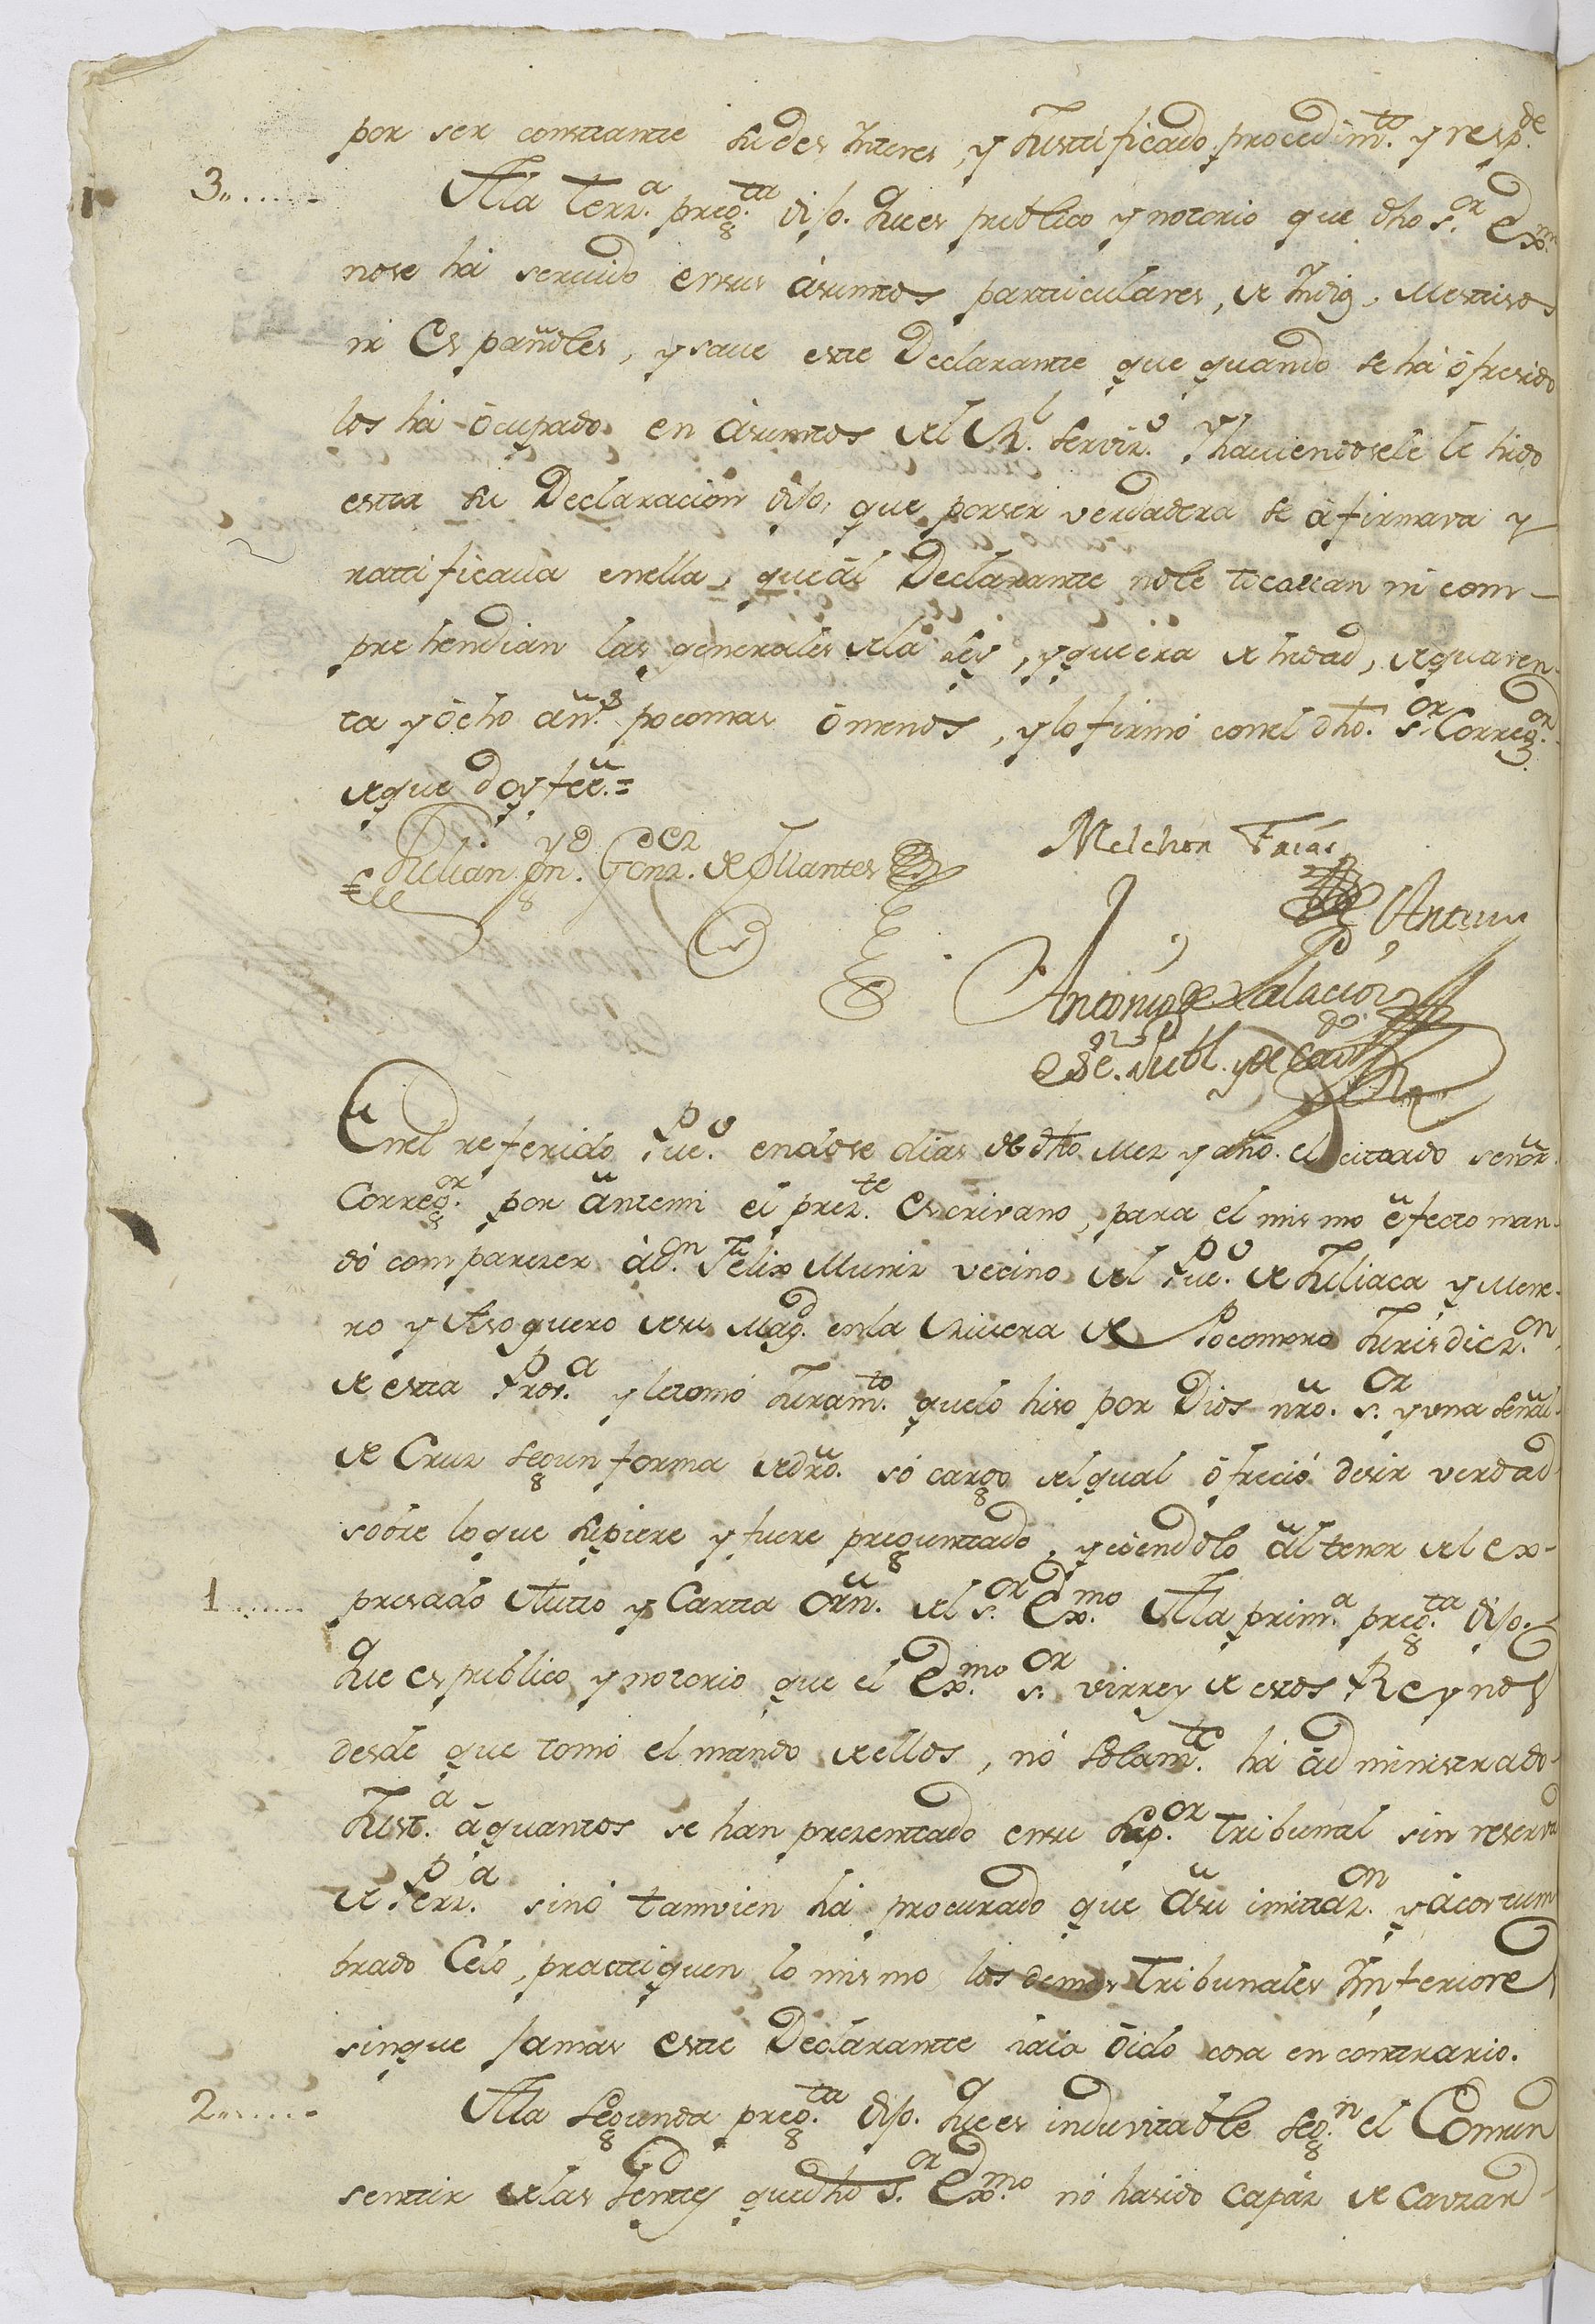 por ser constante su des Interes, y Justificado procedim.to y resp.de
3........ A la terz.a preg.ta dijo. Que es publico y notorio que dho s.or Exm.
no se há servido en sus ásumtos particulares, de Indig, Mestisos
ni Españoles, y save este Declarante que quando se há ófresido
los há ócupado en ásumtos del R.l Serviz.o Y haviendosele le hido
esta su Declaracion dijo, que por ser verdadera se áfirmava y
ratificava en ella, que ál Declarante no le tocavan ni com-
prehendian las generales de la ley, y que éra de hedad, de quaren-
ta y ócho áñ.s poco mas ó menos, y lo firmó con el dho. s.or Correg.or
de que doy fee.=
Julian Gonz. de Collantes
Melchor Frias
Antemi
Antonio de Palacios
Esc.no Publ. y de Cav.do
En el referido Pue.o en dose dias de dho Mez y año. el citado señor.
Correg.or por ántemi el prez.te Escrivano, para el mismo éfecto man-
dó comparezer á d.n Felix Muniz vecino del Pue.o de Juliaca y Mene-
ro y Asoguero de su Mag.d en la Rivera de Pocomoro Jurisdicz.on
de esta Prov.a y le tomó Juram.to que lo hiso por Dios nro. s.or y una señal
de Cruz segun forma de dro. só cargo del qual ófreció desir verdad
sobre lo que supiere y fuere preguntado, y ciendolo ál tenor del ex-
1....... presado Auto y Carta Orn. del s.or Ex.mo A la prim.a preg.ta dijo.
Que es publico y notorio que el Ex.mo s.or virrey de estos Reynos
desde que tomó el mando de ellos, nó solam.te há ádministrado
Just.a á quantos se han presentado en su Sup.or Tribunal sin reserva
de Perz.a sinó tamvien há procurado que á su imitaz.on y ácostum
brado Celo, practiquen lo mismo los demas Tribunales Inferiores
sin que jamas este Declarante iaia óido cosa en contrario.
2....... A la Segunda preg.ta dijo. Que es induvitable seg.n el Comun
sentir de las Jentes que dho s.or Ex.mo nó ha sido capáz de cauzar